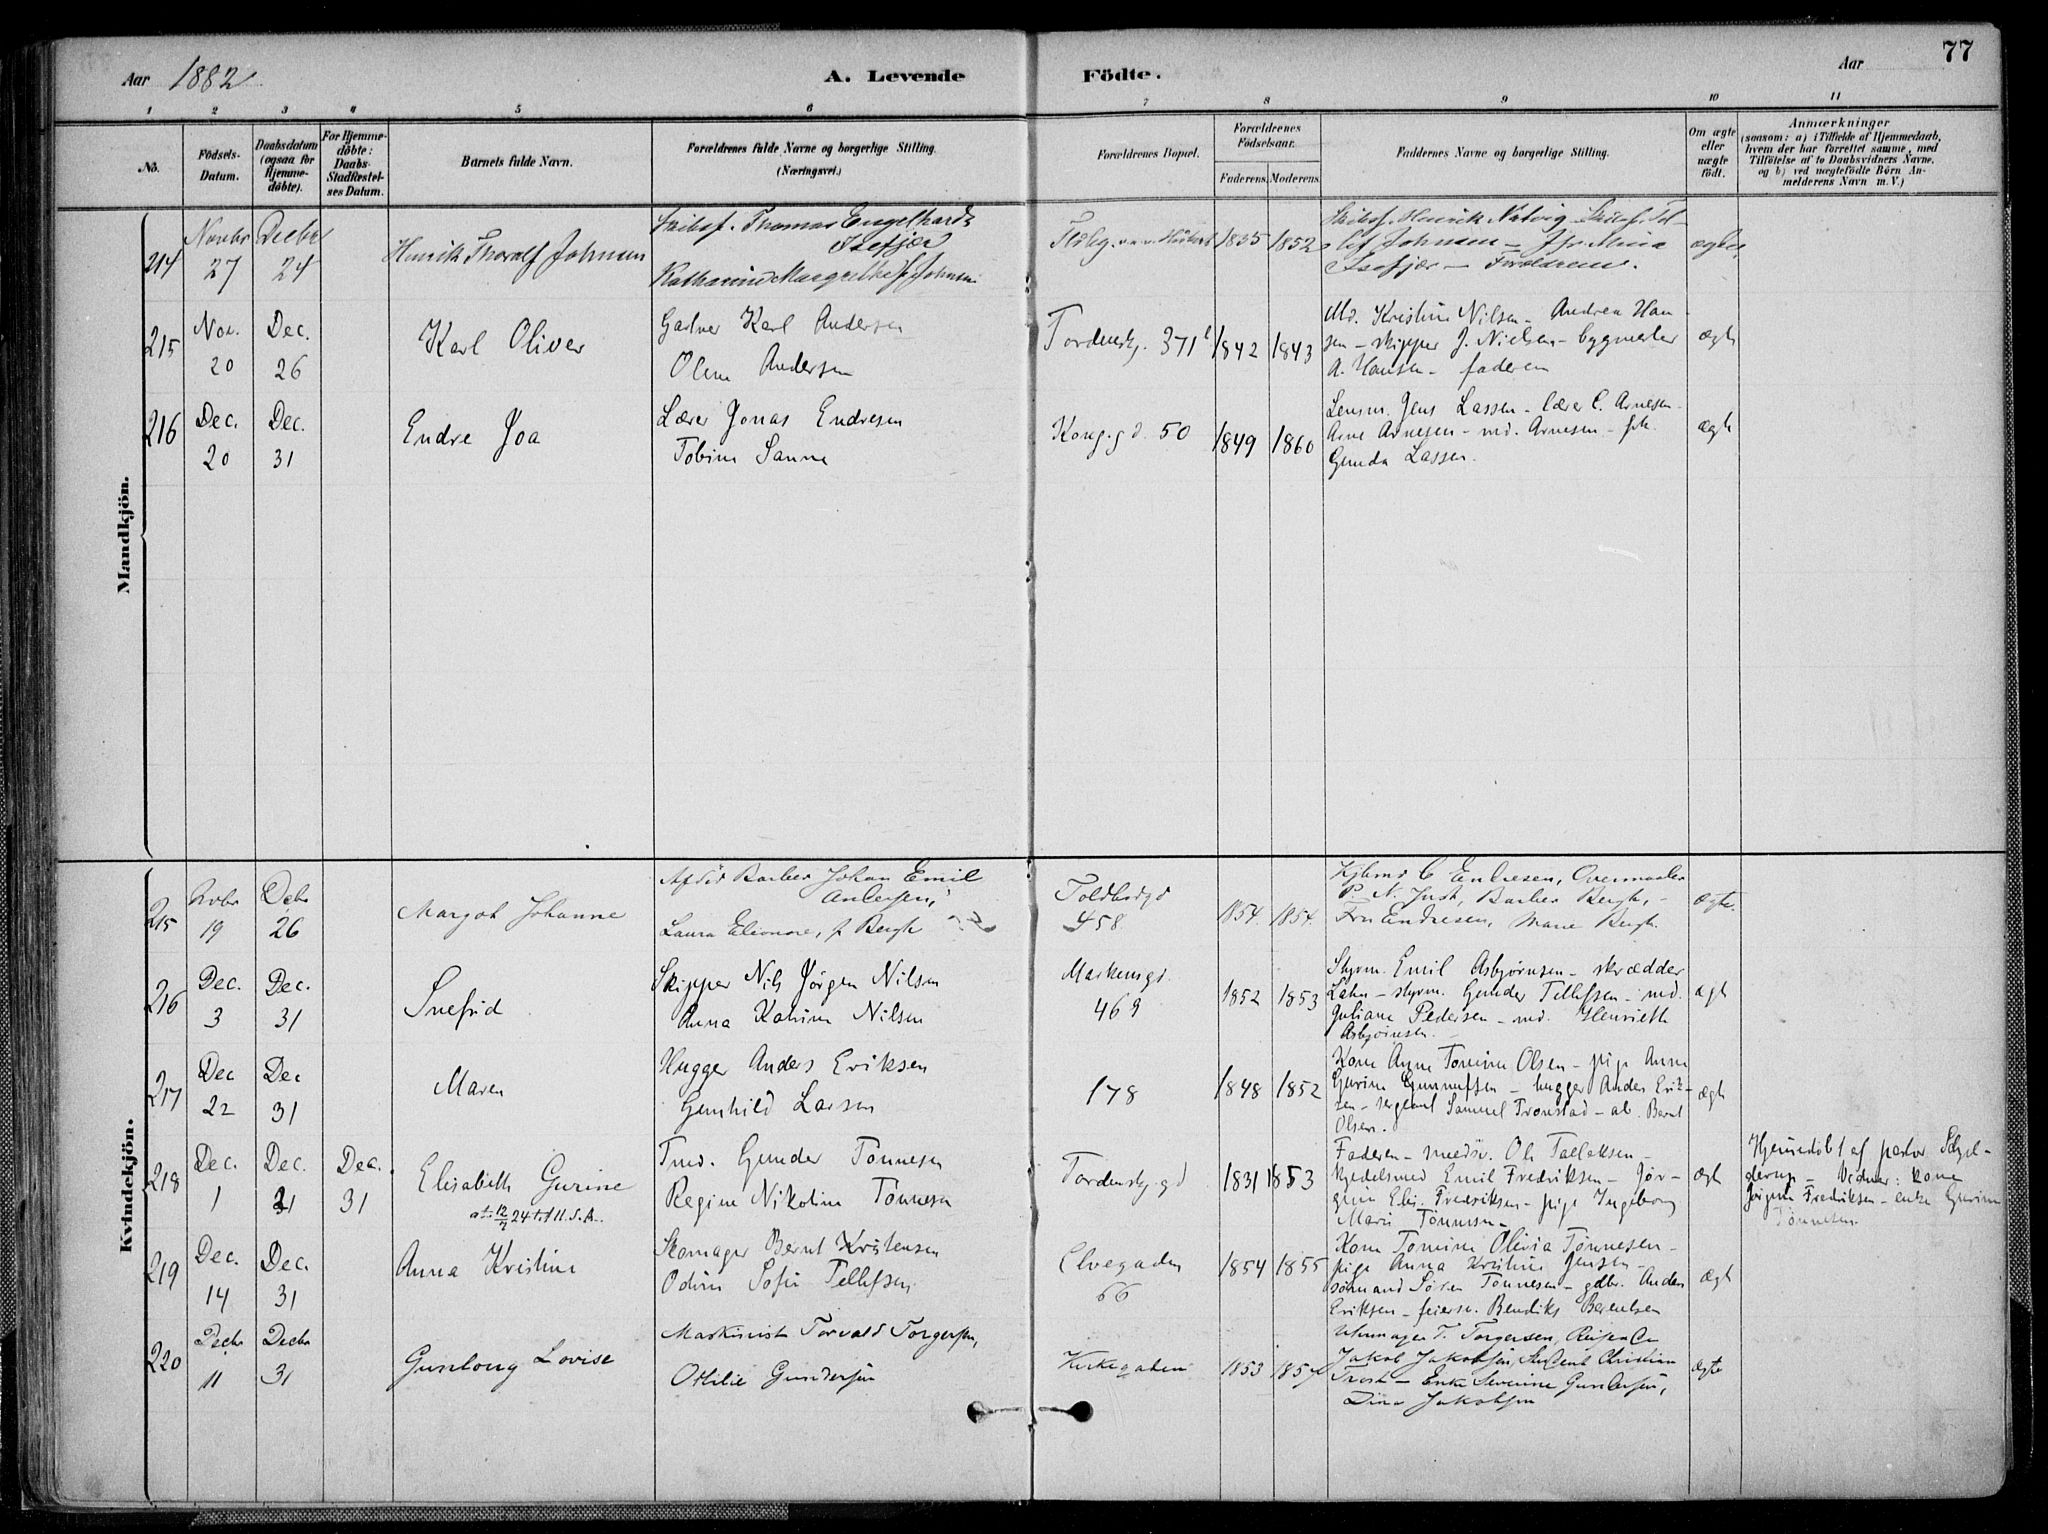 Aar 1882
A. Levende
Födte.
Aar
77
1 2 3 4 5 6 7 8 9 10 11
No.
Födsels-
Datum.
Daabsdatum
(ogsaa for
Hjemme-
döbte).
For Hjemme-
döbte:
Daabs-
Stadfæstel-
ses Datum.
Barnets fulde Navn.
Forældrenes fulde Navne og borgerlige Stilling.
(Næringsvei.)
Forældrenes Bopæl.
Forældrenes
Födselsaar.
Faderens. Moderens.
Faddernes Navne og borgerlige Stilling.
Om ægte
eller
uægte
födt.
Anmærkninger
(saasom: a) i Tilfælde af Hjemmedaab,
hvem der har forrettet samme, med
Tilföielse af to Daabsvidners Navne,
og b) ved uægtefödte Börn An-
melderens Navn m. V.)
Mandkjön.
214
Novbr
27
Decbr
24
Henrik Thoralf Johnsen
Skibsf. Thomas Engelhardt
Isefjær
Katharine Margrethe f. Johnsen
1835 1852
Skibsf. Henrik Natvig
Johnsen — Jfr. Mina
Isefjær — Forældrene.
ægte
215
Nov.
20
Dec.
26
Karl Oliver
Gartner Karl Andersen
Oline Andersen
Tordenskj. 371
1842 1843
Md. Kristine Nilsen – Andrea Han-
sen – skipper J. Nielsen – bygmester
A. Hansen – faderen
ægte
216
Dec.
20
Dec.
31
Endre Joa
Lærer Jonas Endresen
Tobine Sanne
Kong.gd. 50
1849 1860
Lensm. Jens Lassen – lærer C. Arnesen –
Arne Arnesen – md. Arnesen – frk.
Gunda Lassen.
ægte
Kvindekjön.
215
Nvbr
19
Dcbr
26
Margot Johanne
Afdöd Barber Johan Emil
Andersen,
Laura Eleonore, f. Bergh
Toldbodgd
458.
1854. 1854.
C Endresen, Overmaaler
P. N. Just, Barber Bergh, –
Fru Endresen, Marie Bergh.
ægte.
216
Dec.
3
Dec.
31
Snefrid
Skipper Nils Jörgen Nilsen
Anna Katrine Nilsen
Markensgd.
469
1852 1853
Styrm. Emil Asbjörnsen – skrædder
Lahn – styrm. Gunder Tellefsen – md.
Juliane Pedersen – md. Henriette
Asbjörnsen.
ægte
217
Dec
22
Dec
31
Maren
Hugger Anders Eriksen
Gunhild Larsen
178
1848 1852
Kone Anne Tomine Olsen – pige Anne
Gurine Gunnufsen – hugger Anders Erik-
sen – sergeant Samuel Tronstad – ab. Bernt
Olsen.
ægte
218
Dec.
1
Dec.
31
Dec.
31
Elisabeth Gurine
att. 12/7 24 til U.S.A.
Tmd. Gunder Tönnesen
Regine Nikoline Tönnesen
Tordenskj.gd
1831 1853
Faderen – Ole Tallaksen –
kjedelsmed Emil Fredriksen – Jör-
gine Eli. Fredriksen – pige Ingeborg
Marie Tönnesen –
ægte
Hjemmedöbt af pastor Schjel-
derup – Vidner: kone
Jörgine Fredriksen – enke Gurine
Tönnesen.
219
Dec.
14
Dec.
31
Anna Kristine
Skomager Bernt Kristensen
Odine Sofie Tellefsen
Elvegaden
66
1854 1855
Kone Tomine Olivia Tönnesen –
pige Anna Kristine Jensen –
sömand Sören Tönnesen – gdbr. Anders
Eriksen – feiersv. Bendiks Berentsen
ægte
220
Decbr
11
Decbr
31
Gunloug Lovise
Maskinist Torvald Torgersen,
Othilie Gundersen
Kirkegaden
1853 1857
Uhrmager T. Torgersen,
Jakob Jakobsen, Student Christian
Trost – Enke Severine Gundersen,
Dina Jakobsen
ægte